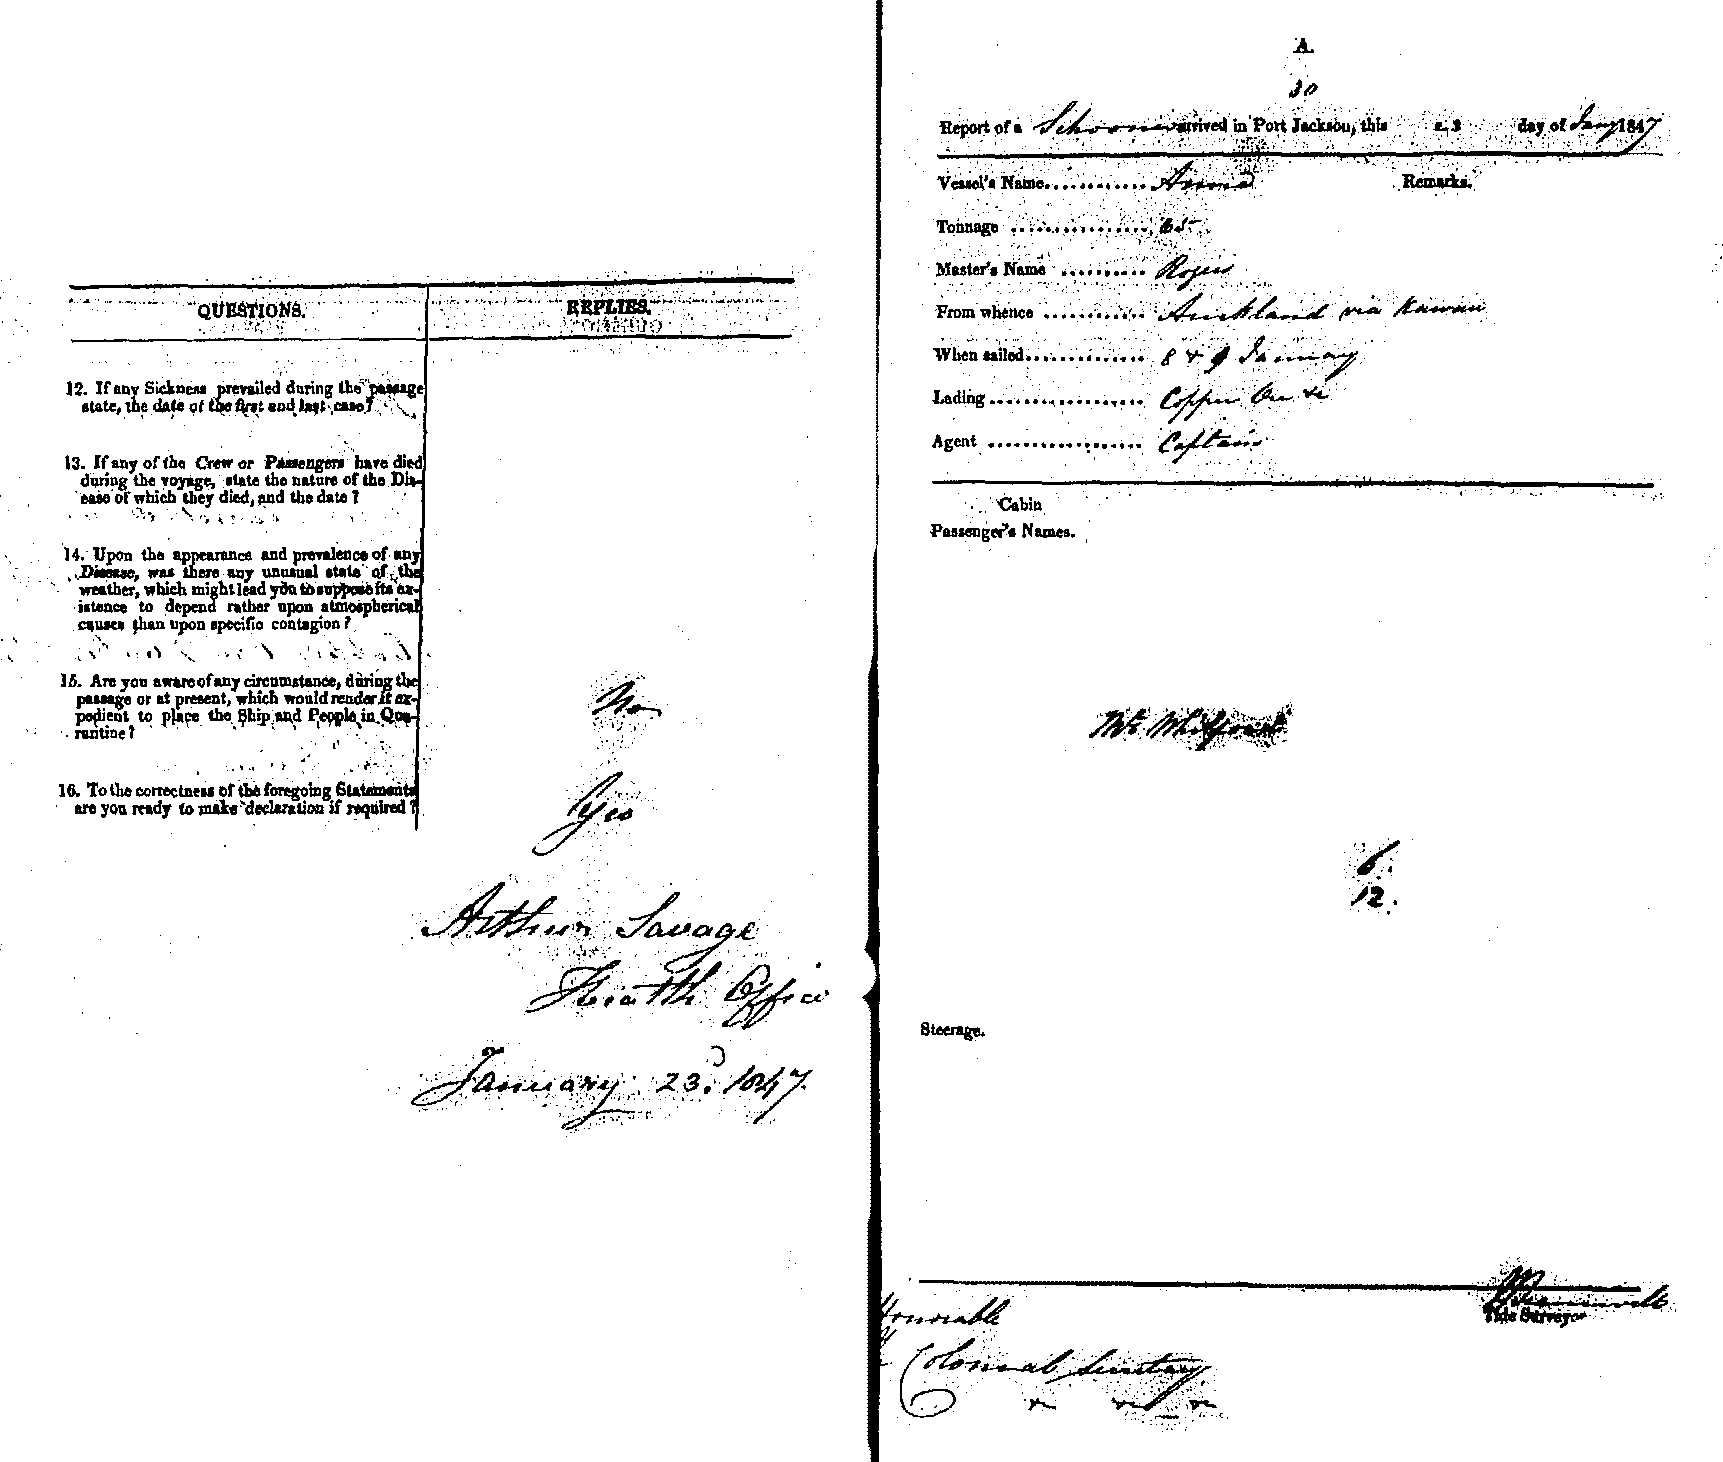 QUESTIONS.
REPLIES.
12. If any Sickness prevailed during the passage
state, the date of the first and last case?
13. If any of the Crew or Passengers have died
during the voyage, state the nature of the Dis-
ease of which they died, and the date?
14. Upon the appearance and prevalence of any
Disease, was there any unusual state of the
weather, which might lead you to suppose its ex-
istence to depend rather upon atmospherical
causes than upon specific contagion?
15. Are you aware of any circumstance, during the
passage or at present, which would render it ex-
pedient to place the Ship and People in Qua-
rantine?
No
16. To the correctness of the foregoing Statements
are you ready to make declaration if required?
Yes
Arthur Savage
Health Officer
January 23d. 1847.
A.
30
Report of a Schooner arrived in Port Jackson, this 23 day of Jany 1847
Vessel's Name............
Remarks.
Tonnage ................ 65
Master's Name .......... Rogers
From whence ............ Auckland via Kawau
When sailed.............. 8 & 9 January
Lading.................. Copper Ore &c
Agent .................. Captain
Cabin
Passenger's Names.
6.
12.
Steerage.
Tide Surveyor
Honorable
Colonial Secretary